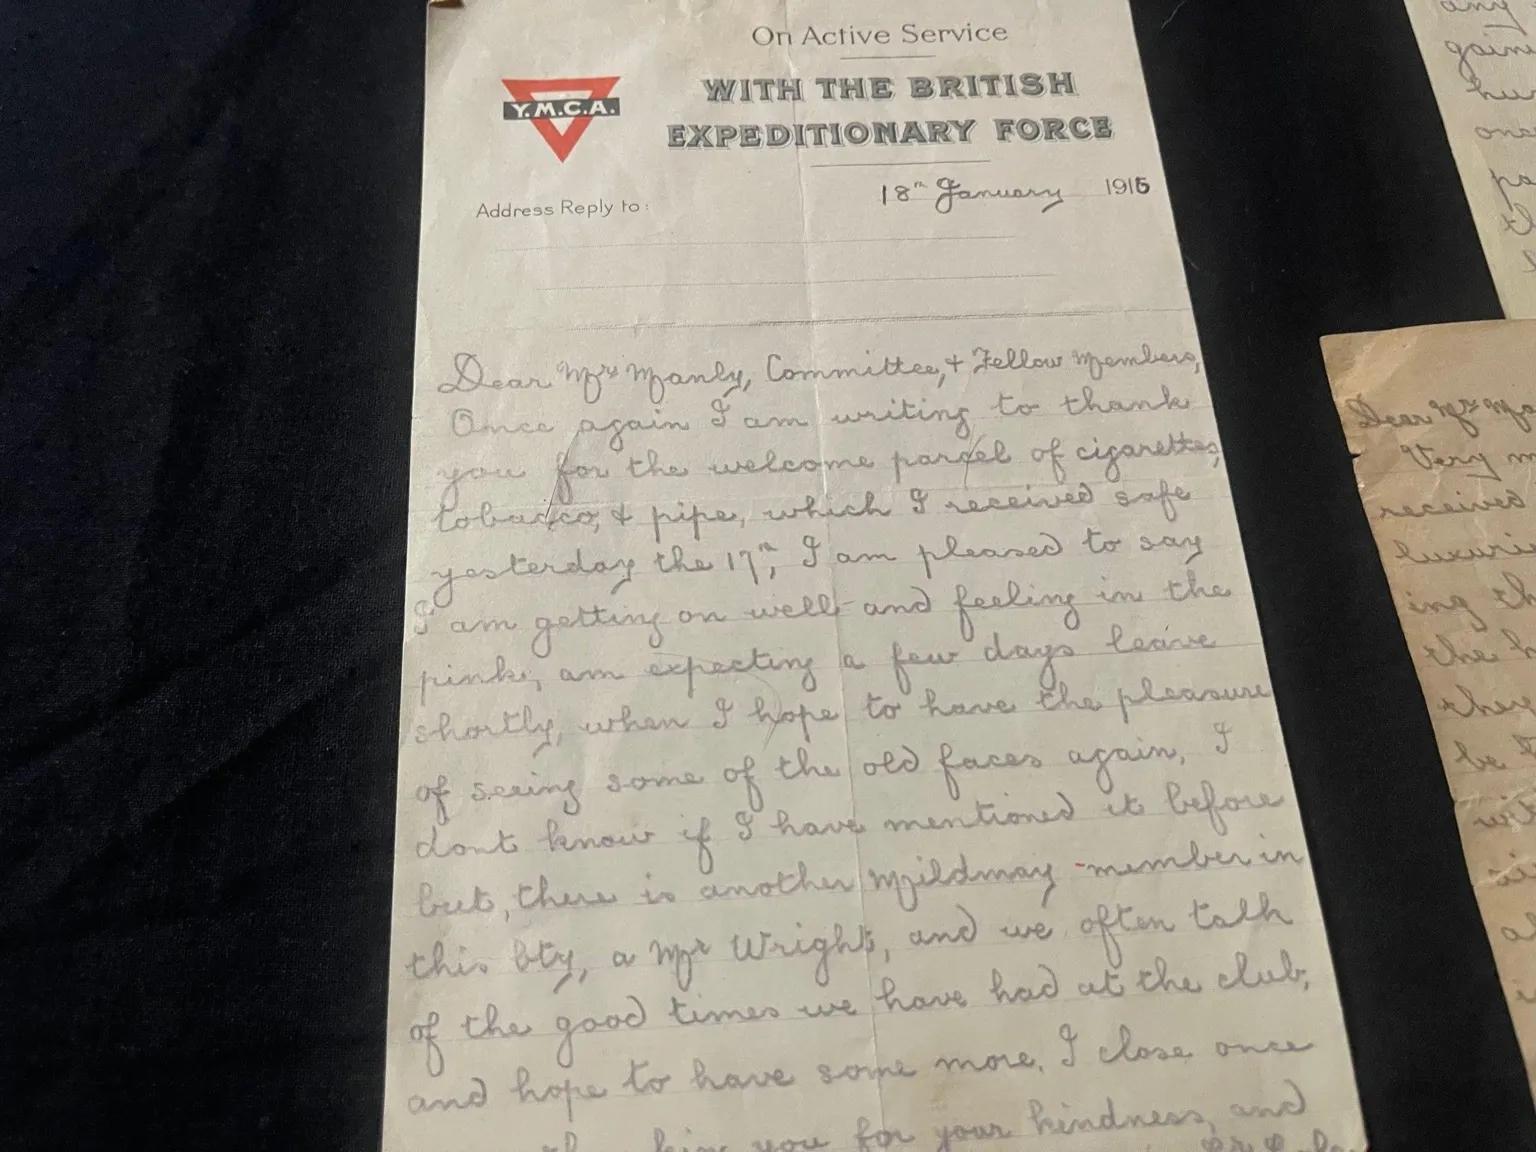 On Active Service
WITH THE BRITISH
EXPEDITIONARY FORCE
Y.M.C.A.
18th January 1916
Address Reply to:
Dear Mrs Manly, Committee, & Fellow Members,
Once again I am writing to thank
you for the welcome parcel of cigarettes,
tobacco, & pipe, which I received safe
yesterday the 17th, I am pleased to say
I am getting on well and feeling in the
pink, am expecting a few days leave
shortly, when I hope to have the pleasure
of seeing some of the old faces again, I
dont know if I have mentioned it before
but, there is another Mildmay member in
this bty, a Mr Wright, and we often talk
of the good times we have had at the club,
and hope to have some more. I close once
you for your kindness, and
any
one
Dear Mrs
Very
received
ing
the
be